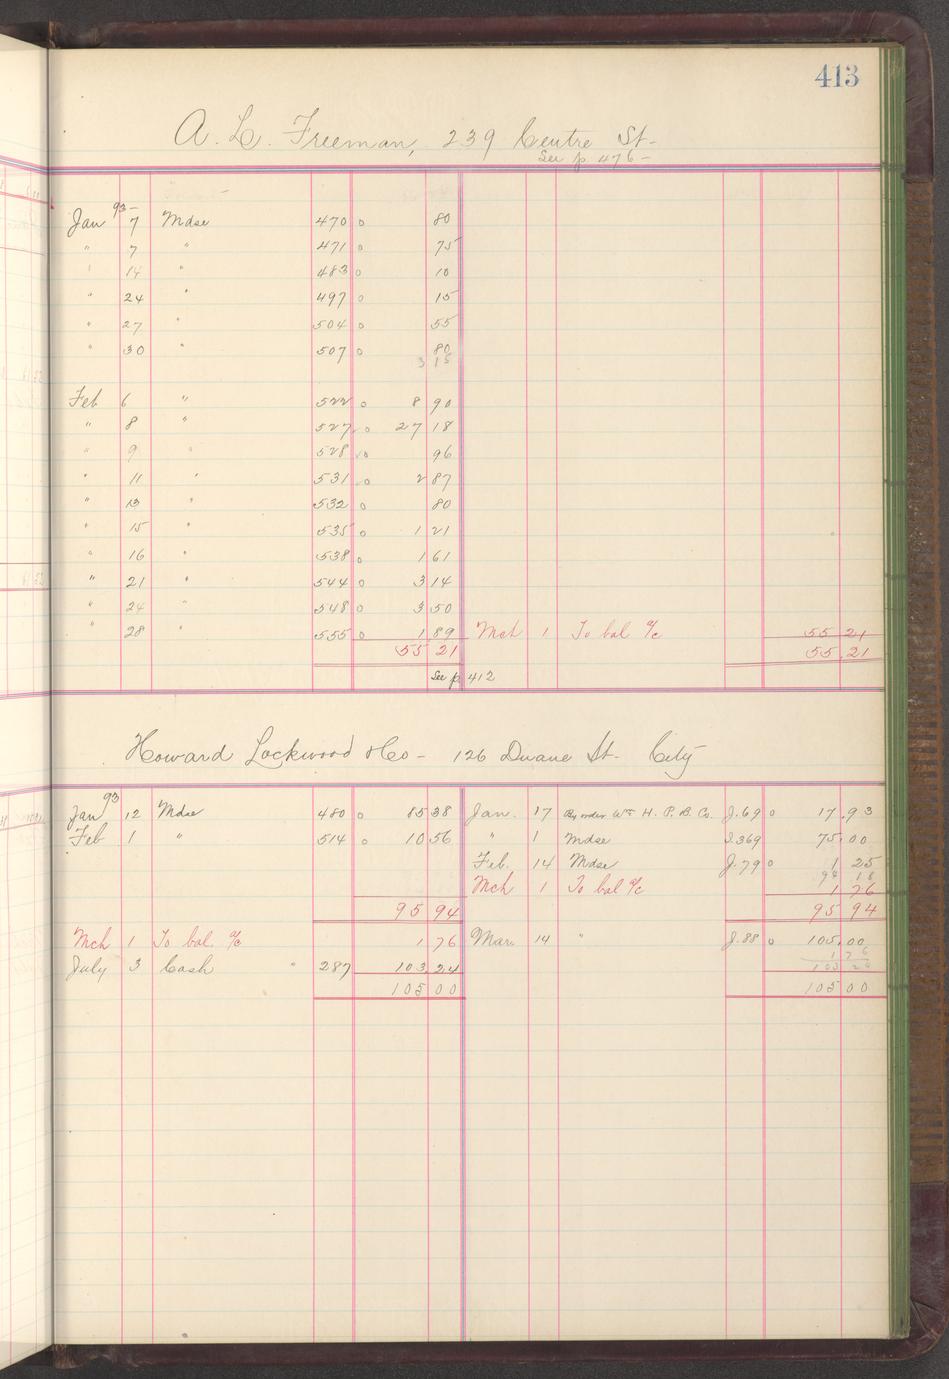 413
A. L. Freeman, 239 Centre St-
See p 476-
Jan 93- 7 Mdse 470 0 80
" 7 " 471 0 75
" 14 " 483 0 10
" 24 " 497 0 15
" 27 " 504 0 55
" 30 " 507 0 80
3 15
Feb 6 " 522 0 8 90
" 8 " 527 0 27 18
" 9 " 528 0 96
" 11 " 531 0 2 87
" 13 " 532 0 80
" 15 " 535 0 1 21
" 16 " 538 0 1 61
" 21 " 544 0 3 14
" 24 " 548 0 3 50
" 28 " 555 0 1 89 Mch 1 To bal a/c 55 21
55 21 55 21
See p 412
Howard Lockwood & Co - 126 Duane St- City
Jan 93 12 Mdse 480 0 85 38 Jan. 17 By order Wm H. P. B. Co. J. 69 0 17.93
Feb 1 " 514 0 10 56 " 1 Mdse J. 369 75.00
Feb. 14 Mdse J. 79 0 1 25
94 18
Mch 1 To bal a/c 1 76
95 94 95 94
Mch 1 To bal. a/c 1 76 Mar. 14 " J. 88 0 105.00
1 76
July 3 Cash " 287 103 24 103 24
105 00 105 00